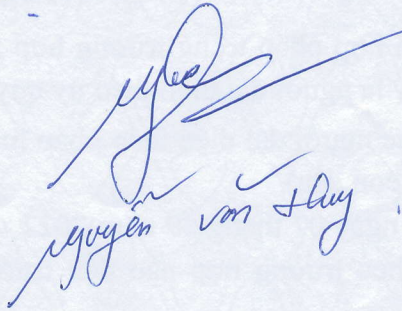 Nguyễn Văn Huy